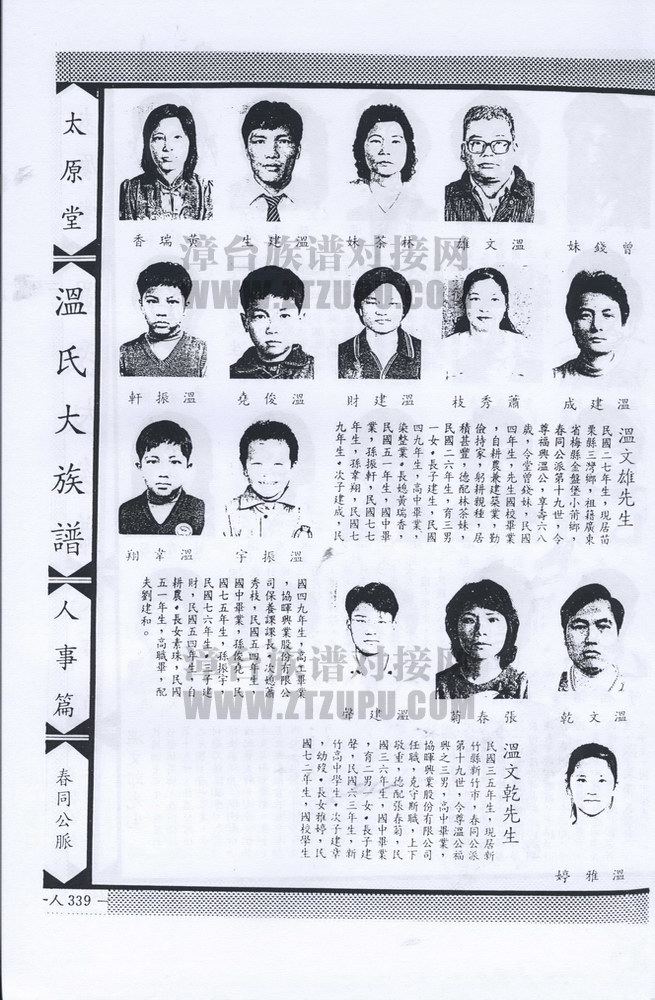 太原堂
溫氏大族譜
人事篇
春同公脈
-人339-
曾錢妹
溫文雄
林茶妹
溫建生
黃瑞香
溫建成
蕭秀枝
溫建財
溫俊堯
溫振軒
溫振宇
溫韋翔
溫文雄先生
民國二七年生，現居苗
栗縣三灣鄉，祖籍廣東
省梅縣金盤堡小莆鄉，
春同公派第十九世，令
尊福興溫公，享壽六八
歲，令堂曾錢妹，民國
四年生，先生國校畢業
，自耕農兼建築業，勤
儉持家，躬耕親種，居
積甚豐，德配林茶妹，
民國二六年生，育三男
一女。長子建生，民國
四九年生，高中畢業，
染整業。長媳黃瑞香，
民國五一年生，國中畢
業，孫振軒，民國七七
年生，孫韋翔，民國七
九年生。次子建成，民
國四九年生，高工畢業
，協暉興業股份有限公
司保養課課長，次媳蕭
秀枝，民國五四年生，
國中畢業，孫俊堯，民
國七五年生，孫振宇，
民國七六年生。三子建
財，民國五四年生，自
耕農。長女素珠，民國
五一年生，高職畢，配
夫劉建和。
溫文乾
張春菊
溫建聲
溫雅婷
溫文乾先生
民國三五年生，現居新
竹縣新竹市，春同公派
第十九世，令尊溫公福
興之三男，高中畢業，
協暉興業股份有限公司
任職，克守斯職，上下
敬重，德配張春菊，民
國三六年生，國中畢業
，育二男一女。長子建
聲，民國六三年生，新
竹高中學生。次子建章
，幼歿。長女雅婷，民
國七二年生，國校學生
漳台族谱对接网
WWW.ZTZUPU.COM
漳台族谱对接网
WWW.ZTZUPU.COM